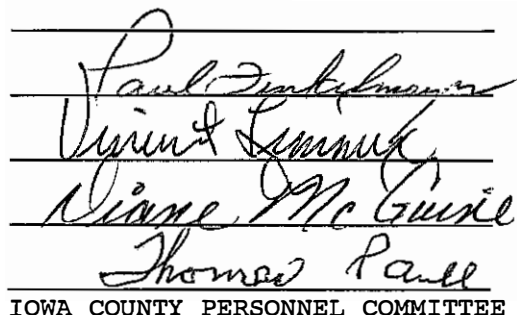 Paul
Vincent Limmex
Diane McGuire
Thomas Paull
IOWA COUNTY PERSONNEL COMMITTEE